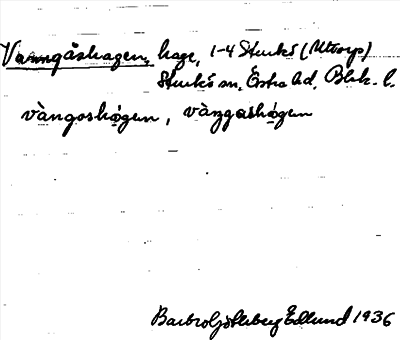 Vanngåshagen, hage, 1-4 Sturkö (Uttorp)
Sturkö sn, Östra hd, Blek. l.
vàngoshø̀gen, vàŋgashø̀gen
Barbro Götlsberg Edlund 1936